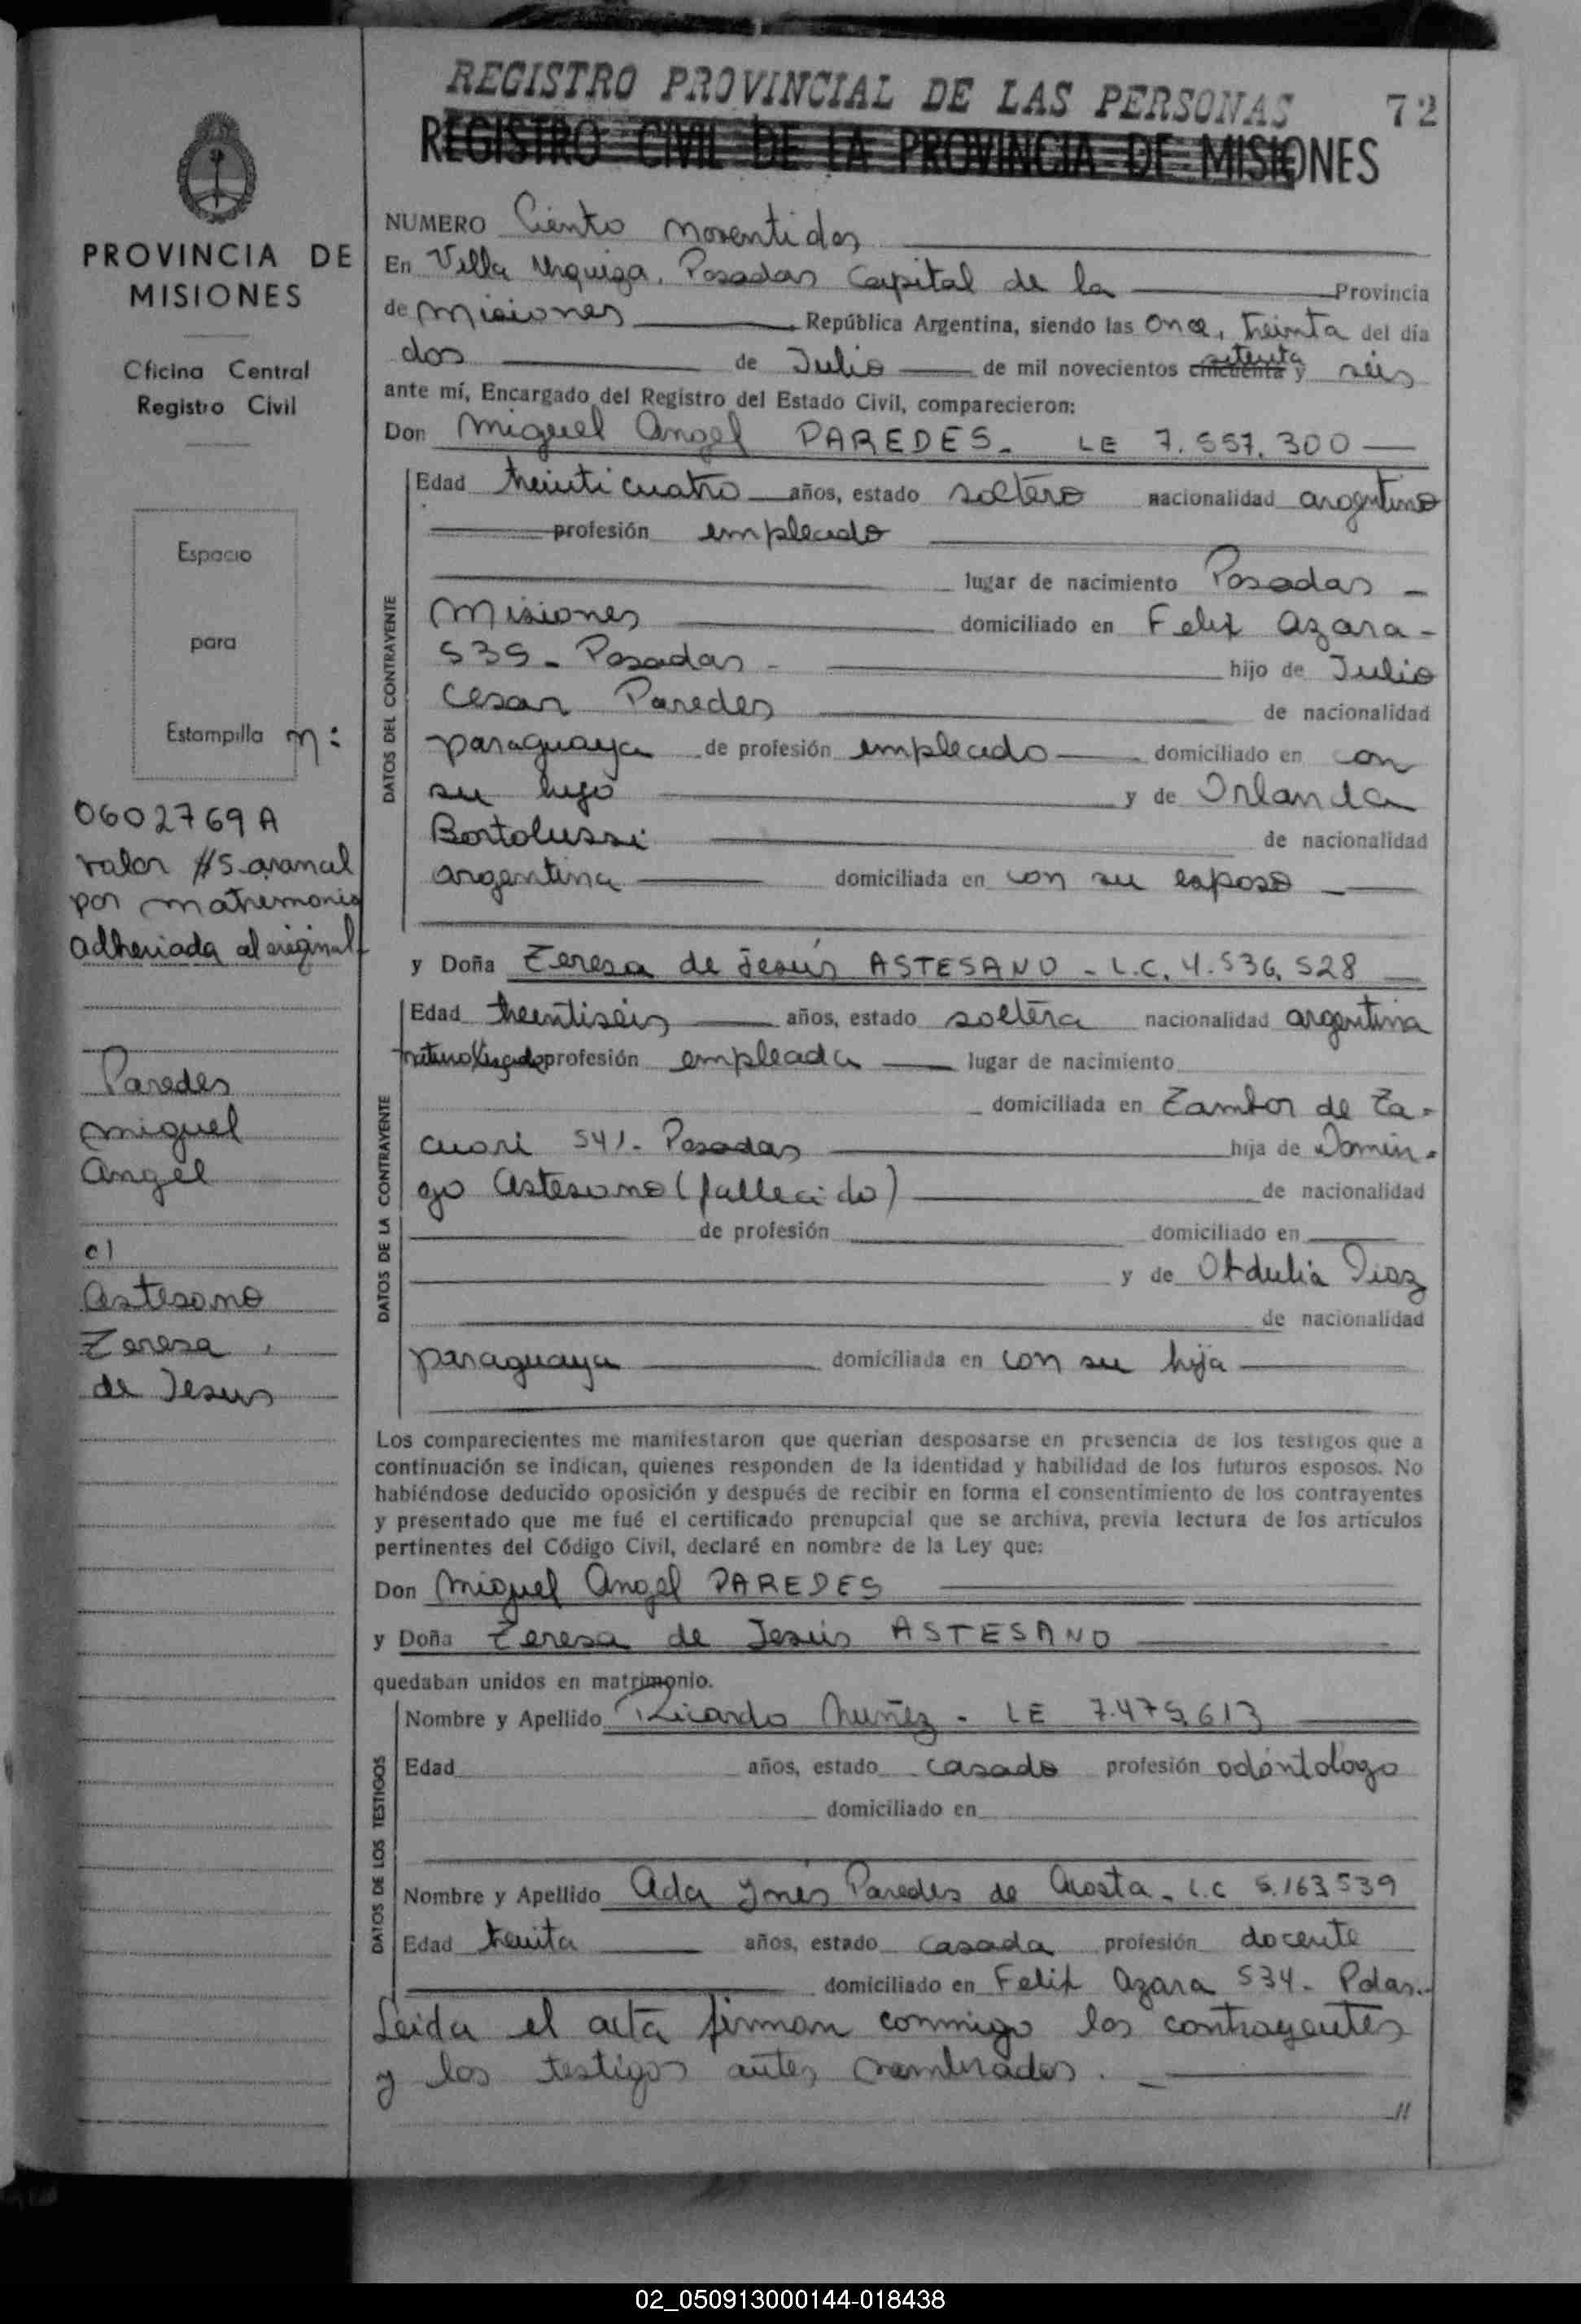 REGISTRO PROVINCIAL DE LAS PERSONAS
72
REGISTRO CIVIL DE LA PROVINCIA DE MISIONES
PROVINCIA DE
MISIONES
Oficina Central
Registro Civil
Espacio
para
Estampilla n:
0602769 A
valor $5 arancel
por matrimonio
adheriada al original
Paredes
Miguel
Angel
c/
Astesano
Teresa
de Jesus
NUMERO Ciento noventidos
En Villa Urquiza, Posadas Capital de la Provincia
de Misiones República Argentina, siendo las Once, treinta del día
dos de Julio de mil novecientos cincuenta setenta y seis
ante mí, Encargado del Registro del Estado Civil, comparecieron:
Don Miguel Angel PAREDES - LE 7.557.300
DATOS DEL CONTRAYENTE
Edad treinticuatro años, estado soltero nacionalidad argentino
profesión empleado
lugar de nacimiento Posadas -
Misiones domiciliado en Felix Azara -
535 - Posadas - hijo de Julio
Cesar Paredes de nacionalidad
paraguaya de profesión empleado domiciliado en con
su hijo y de Orlanda
Bortolussi de nacionalidad
argentina domiciliada en con su esposo
y Doña Teresa de Jesús ASTESANO - L.C. 4.536.528
DATOS DE LA CONTRAYENTE
Edad treintiséis años, estado soltera nacionalidad argentina
naturalizada profesión empleada lugar de nacimiento
domiciliada en Tambor de Ta-
cuari 541 - Posadas hija de Domin-
go Astesano (fallecido) de nacionalidad
de profesión domiciliado en
y de Obdulia Diaz
de nacionalidad
paraguaya domiciliada en con su hija
Los comparecientes me manifestaron que querían desposarse en presencia de los testigos que a
continuación se indican, quienes responden de la identidad y habilidad de los futuros esposos. No
habiéndose deducido oposición y después de recibir en forma el consentimiento de los contrayentes
y presentado que me fué el certificado prenupcial que se archiva, previa lectura de los artículos
pertinentes del Código Civil, declaré en nombre de la Ley que:
Don Miguel Angel PAREDES
y Doña Teresa de Jesús ASTESANO
quedaban unidos en matrimonio.
DATOS DE LOS TESTIGOS
Nombre y Apellido Ricardo Nuñez - LE 7.475.613
Edad años, estado casado profesión odóntologo
domiciliado en
Nombre y Apellido Ada Ynés Paredes de Acosta - L.C 5.163539
Edad treinta años, estado casada profesión docente
domiciliado en Felix Azara 534 - Pdas.-
Leida el acta firman conmigo los contrayentes
y los testigos antes nombrados. -
//
02_050913000144-018438